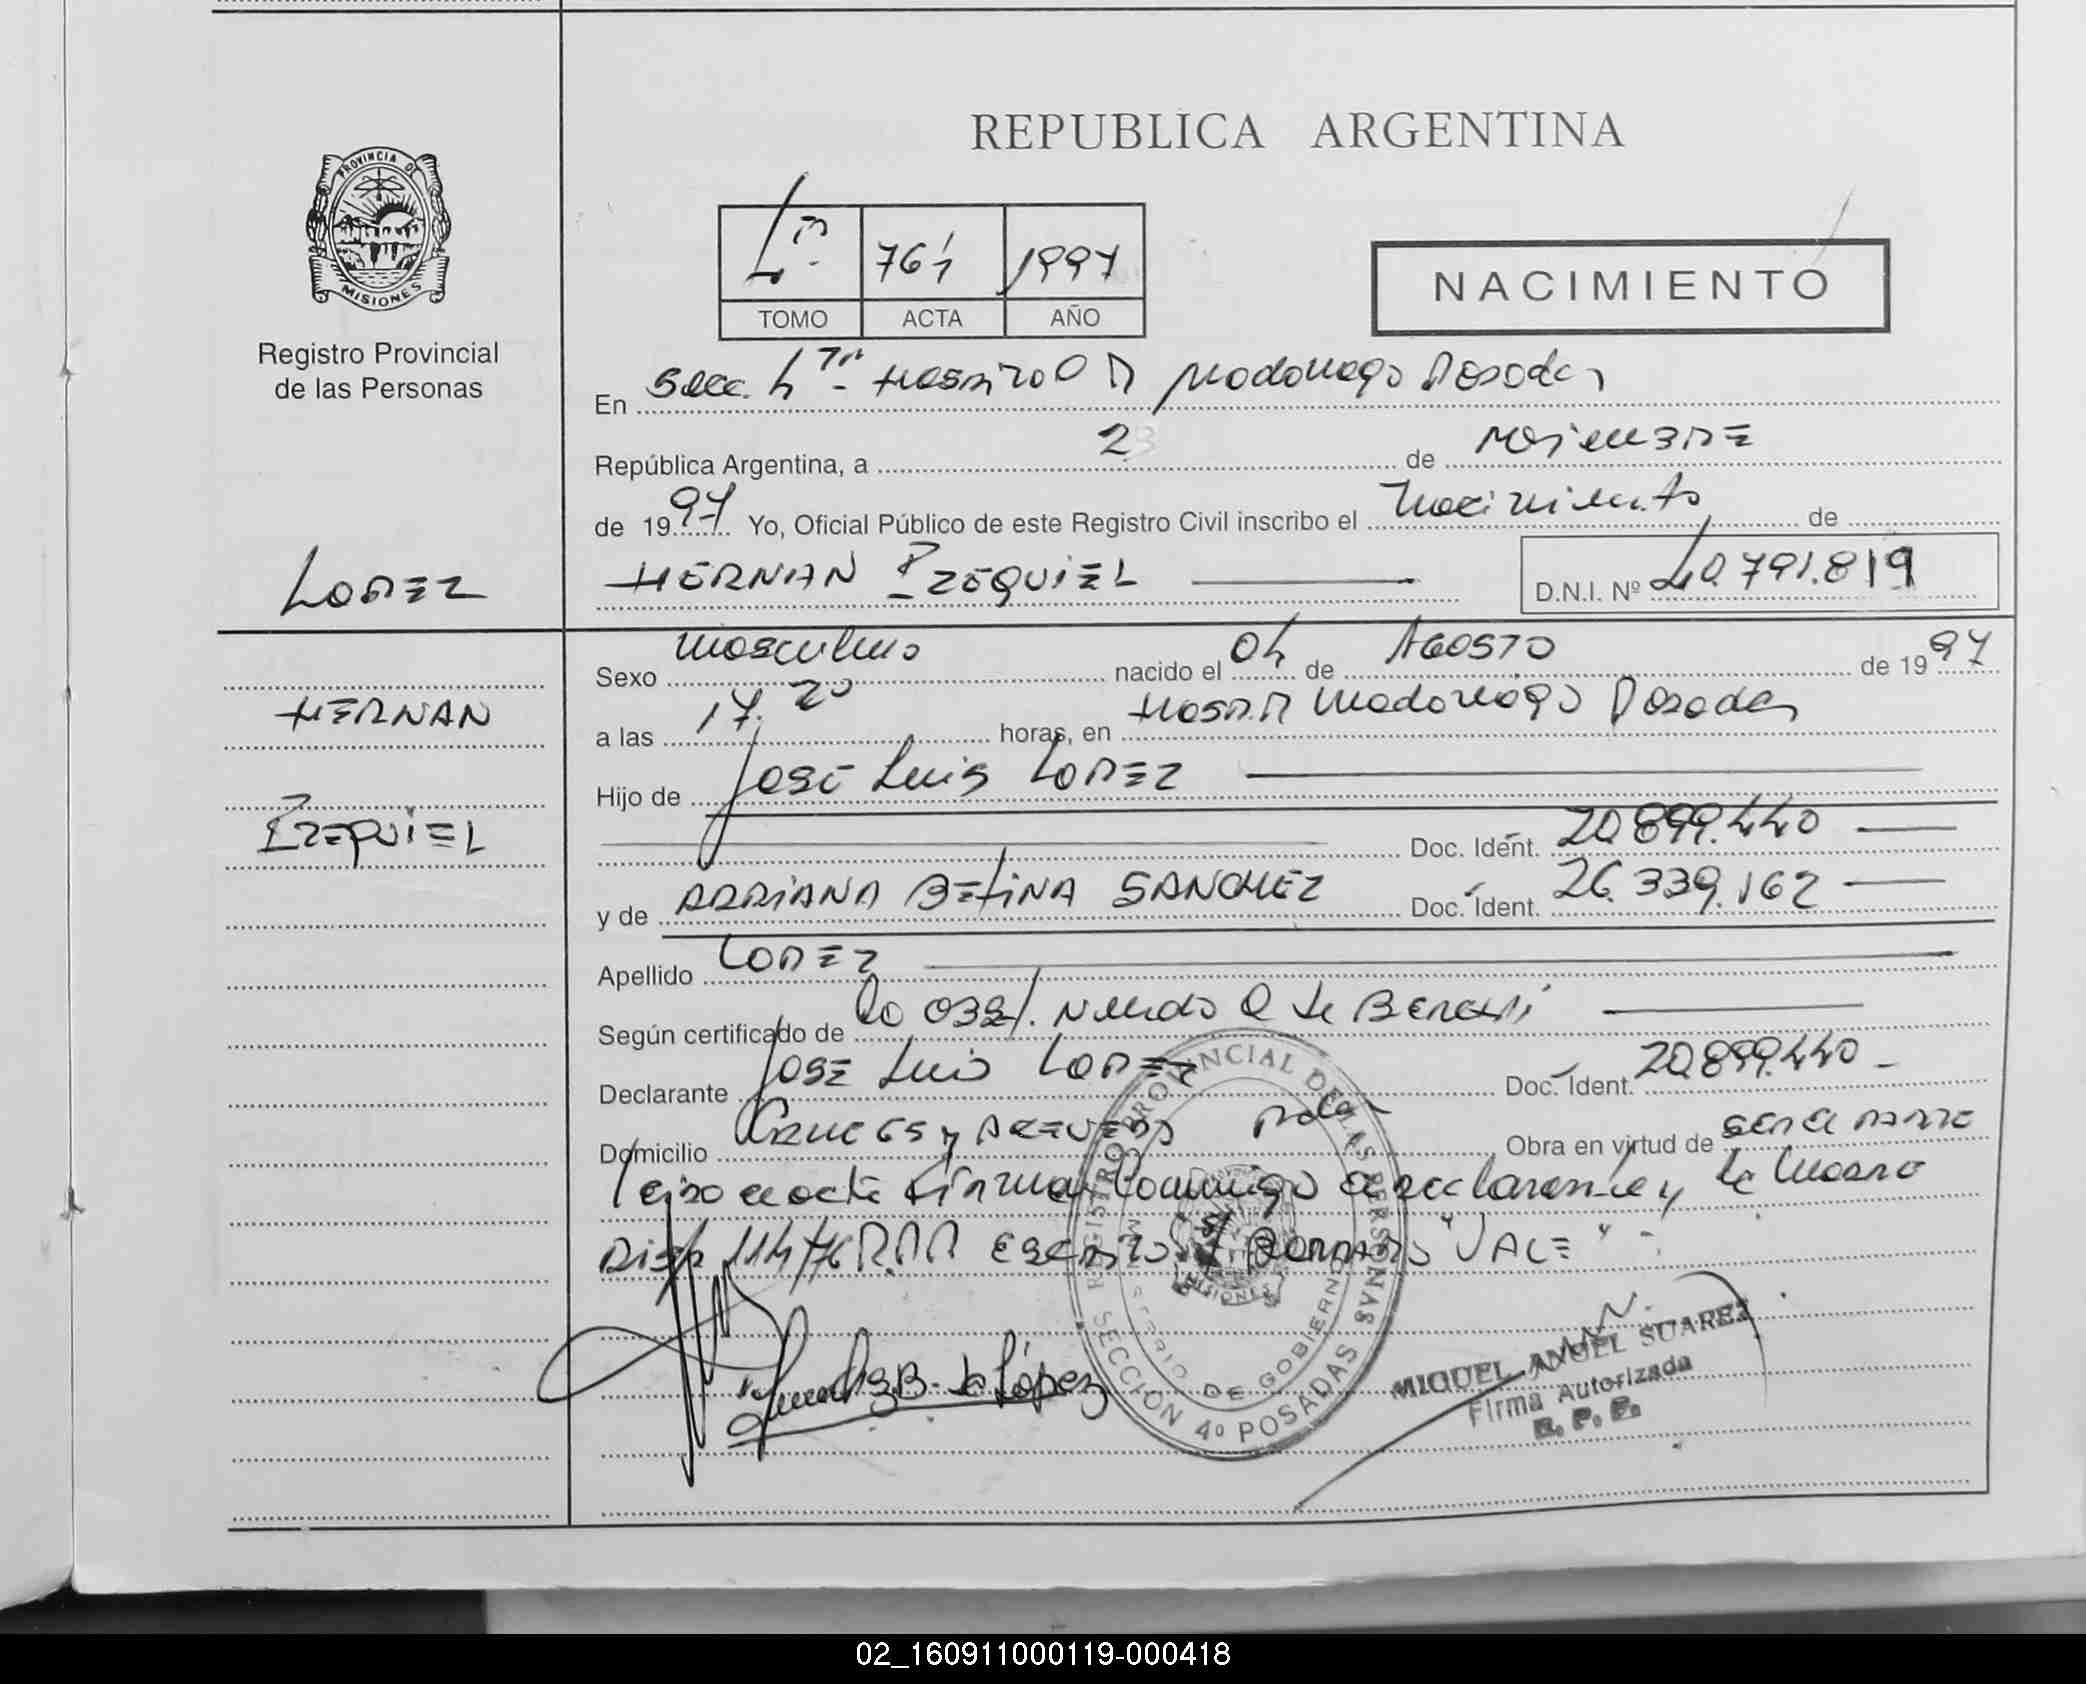 REPUBLICA ARGENTINA
PROVINCIA DE
MISIONES
Registro Provincial
de las Personas
761 1997
TOMO ACTA AÑO
NACIMIENTO
En Secc. 4ta Madariaga Posadas
República Argentina, a 2 de
de 1997 Yo, Oficial Público de este Registro Civil inscribo el Nacimiento de
LOPEZ
HERNAN EZEQUIEL D.N.I. Nº 40.791.819
HERNAN
EZEQUIEL
Sexo Masculino nacido el 04 de AGOSTO de 1997
a las 17.20 horas, en Hosp. R Madariaga Posadas
Hijo de JOSE Luis LOPEZ
Doc. Ident. 20.899.440
y de ADRIANA BETINA SANCHEZ Doc. Ident. 26.339.162
Apellido LOPEZ
Según certificado de la Obst.
Declarante JOSE Luis LOPEZ Doc. Ident. 20.899.440
Domicilio Obra en virtud de ser el padre
acta firman conmigo el declarante y la madre
Disp 114/76 R.P.P "VALE"
B. de López
REGISTRO PROVINCIAL DE LAS PERSONAS
MINISTERIO DE GOBIERNO
MISIONES
SECCIÓN 4º POSADAS
MIGUEL ANGEL SUAREZ
Firma Autorizada
R. P. P.
02_160911000119-000418